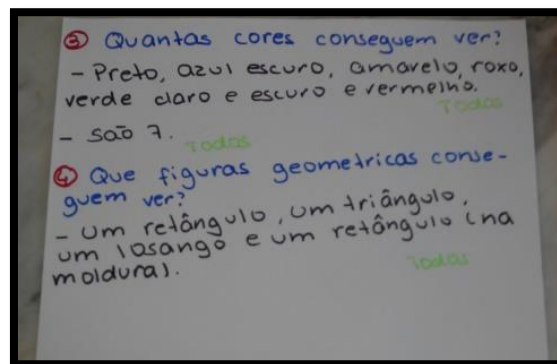 ③ Quantas cores conseguem ver?
- Preto, azul escuro, amarelo, roxo,
verde claro e escuro e vermelho.
Todos
- São 7.
Todos
④ Que figuras geometricas conse-
guem ver?
- Um retângulo, um triângulo,
um losango e um retângulo (na
moldura).
Todos